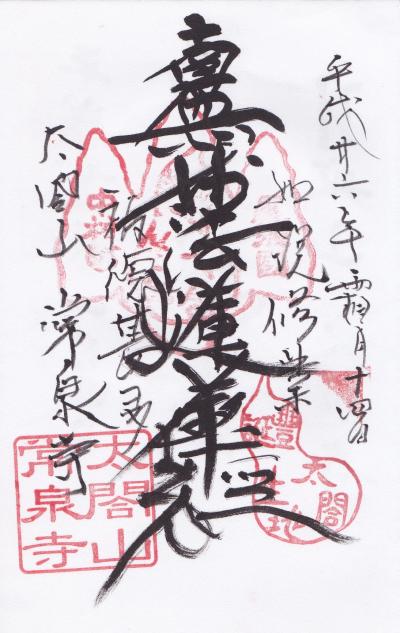 平成廿六年霜月十四日
如説修行
南無妙法蓮華経
福徳甚多
太閤山
常泉寺
豊公
誕生地
太閤
太閤山
常泉寺